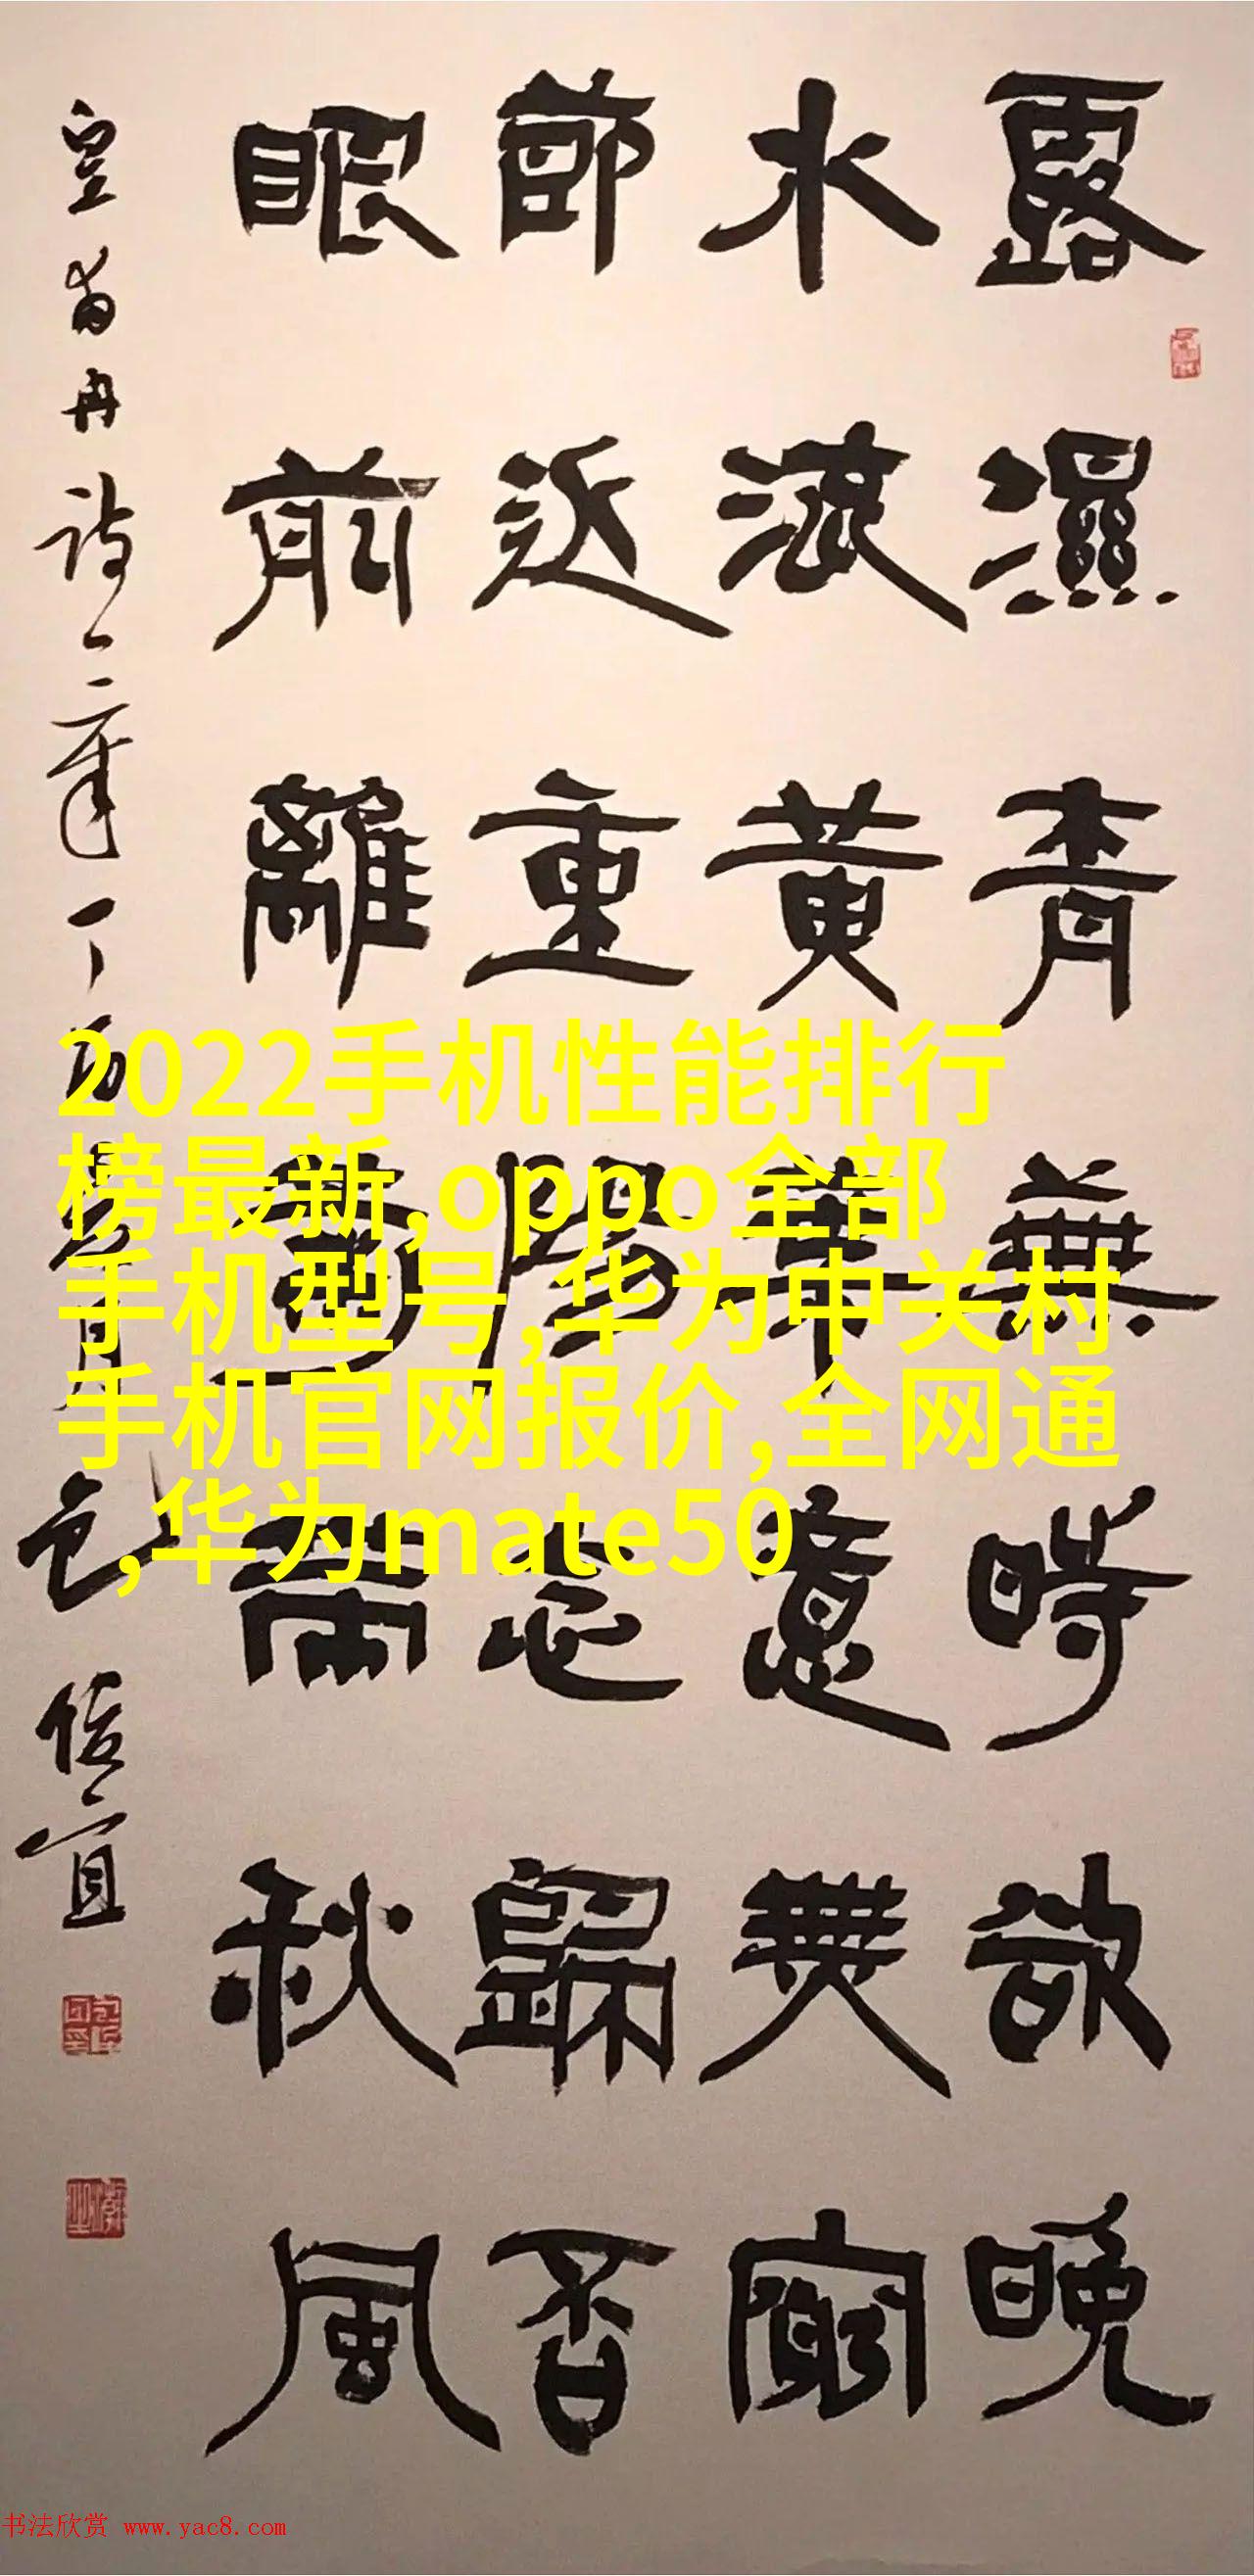 露濕青蕪時欲晚
水流黄葉意無窮
節近重陽念歸否
眼前離菊帶秋風
皇甫冉詩一章丁酉
2022手机性能排行
榜最新,oppo全部
手机型号,华为中关村
手机官网报价,全网通
,华为mate50
书法欣赏 www.yac8.com